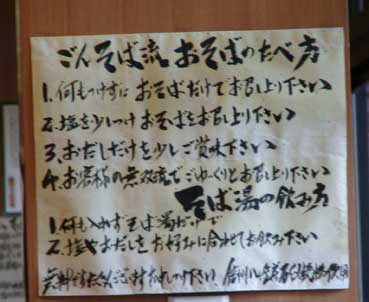 ごんそば流 おそばのたべ方
1.何もつけずに おそばだけでお召し上り下さい
2.塩を少しつけ おそばをお召し上り下さい
3.おだしだけを少しご賞味下さい
4.お客様の無双流でごゆっくりとお召し上り下さい
そば湯の飲み方
1.何も入れず そば湯だけで
2.塩やおだしをお好みに合わせてお飲み下さい
無料です